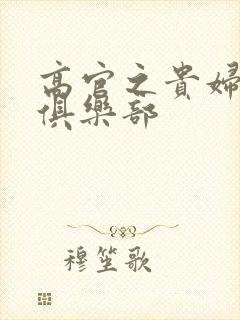 高官之貴婦
俱樂部
穆笙歌